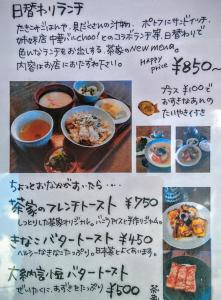 日替わりランチ
たきこみごはんや、具だくさんの汁物、ポトフにサンドイッチ、
姉妹店 中華バルchao!とのコラボランチ等、日替わりで
色んなランチをお出しする、茶家のNEW menu。
内容はお店におたずね下さい。
HAPPY PRICE ¥850〜
プラス ¥100で
お好きなあんの
たいやきつき
ちょっとおなかがすいたら…
茶家のフレンチトースト ¥750
しっとりした茶家オリジナル。バニラアイスと手作りジャム。
きなこバタートースト ¥450
ヘルシーなきなこたっぷり。日本茶とよくあいます。
大納言小豆バタートースト
ぜいたくに、あずきをたっぷり ¥500